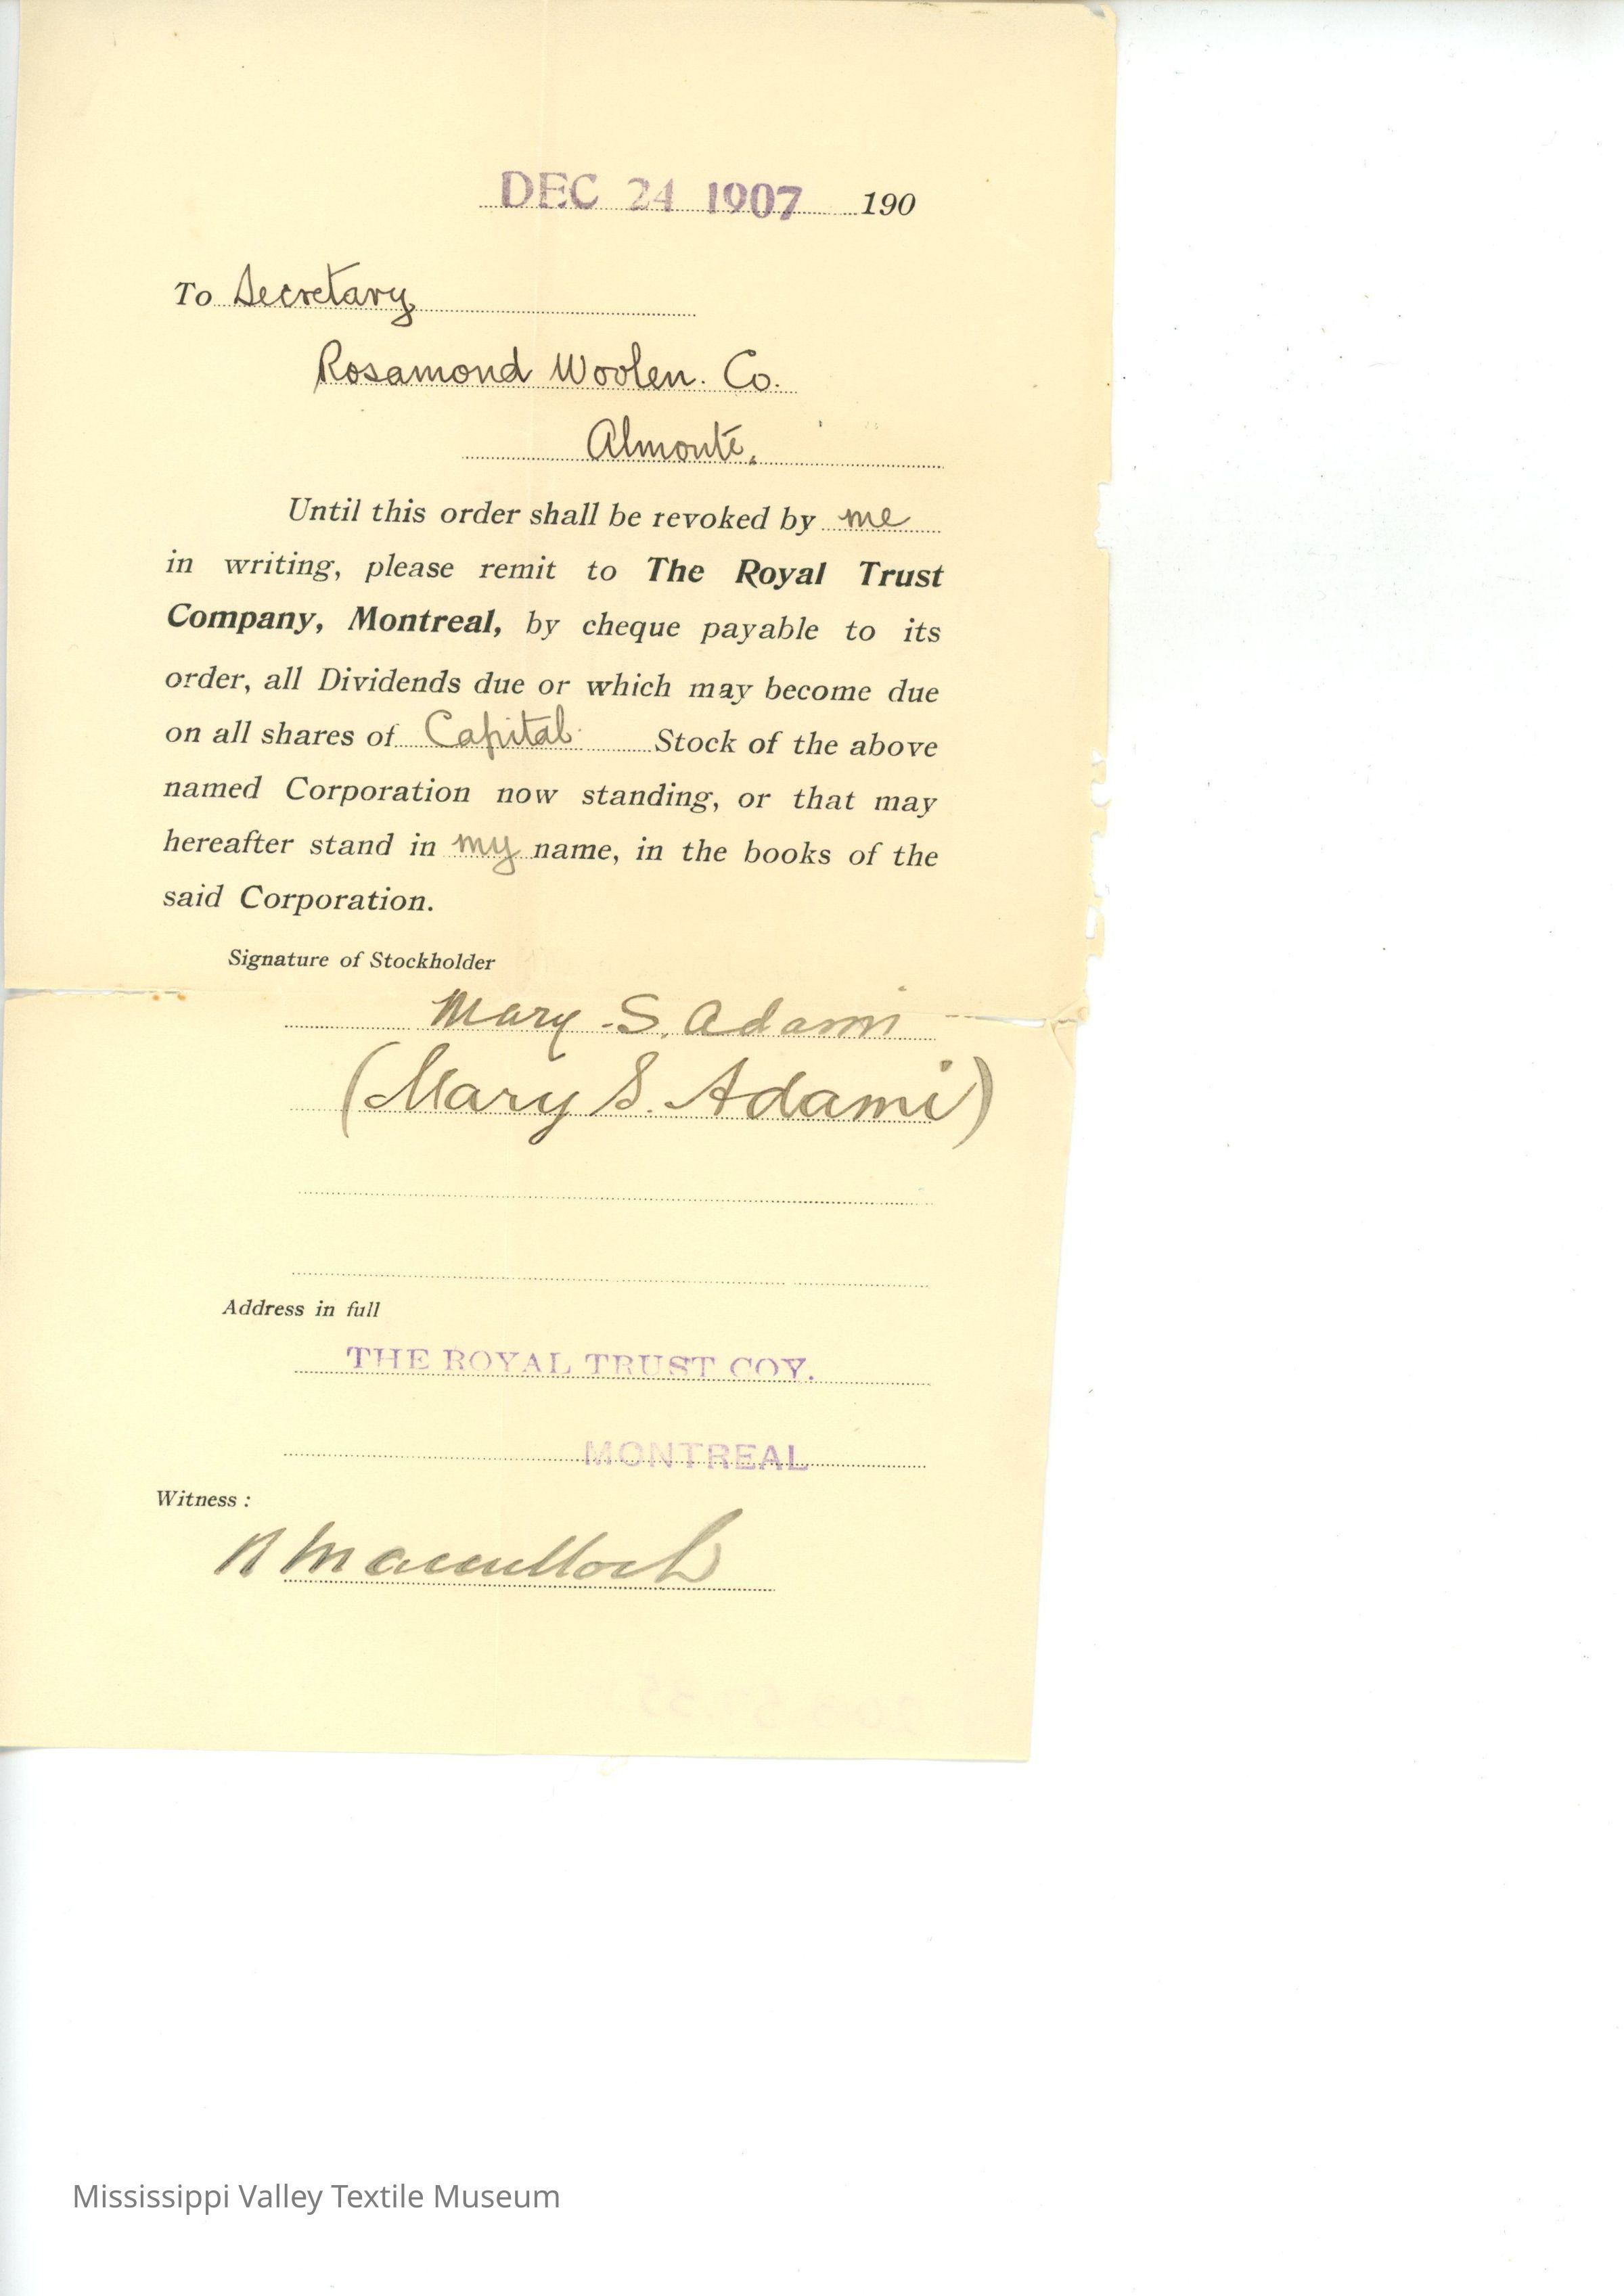 DEC 24 1907 190
To Secretary
Rosamond Woolen. Co.
Almonte.
Until this order shall be revoked by me
in writing, please remit to The Royal Trust
Company, Montreal, by cheque payable to its
order, all Dividends due or which may become due
on all shares of Capital Stock of the above
named Corporation now standing, or that may
hereafter stand in my name, in the books of the
said Corporation.
Signature of Stockholder
Mary S. Adami
(Mary S. Adami)
Address in full
THE ROYAL TRUST COY.
MONTREAL
Witness :
Macculloch
Mississippi Valley Textile Museum